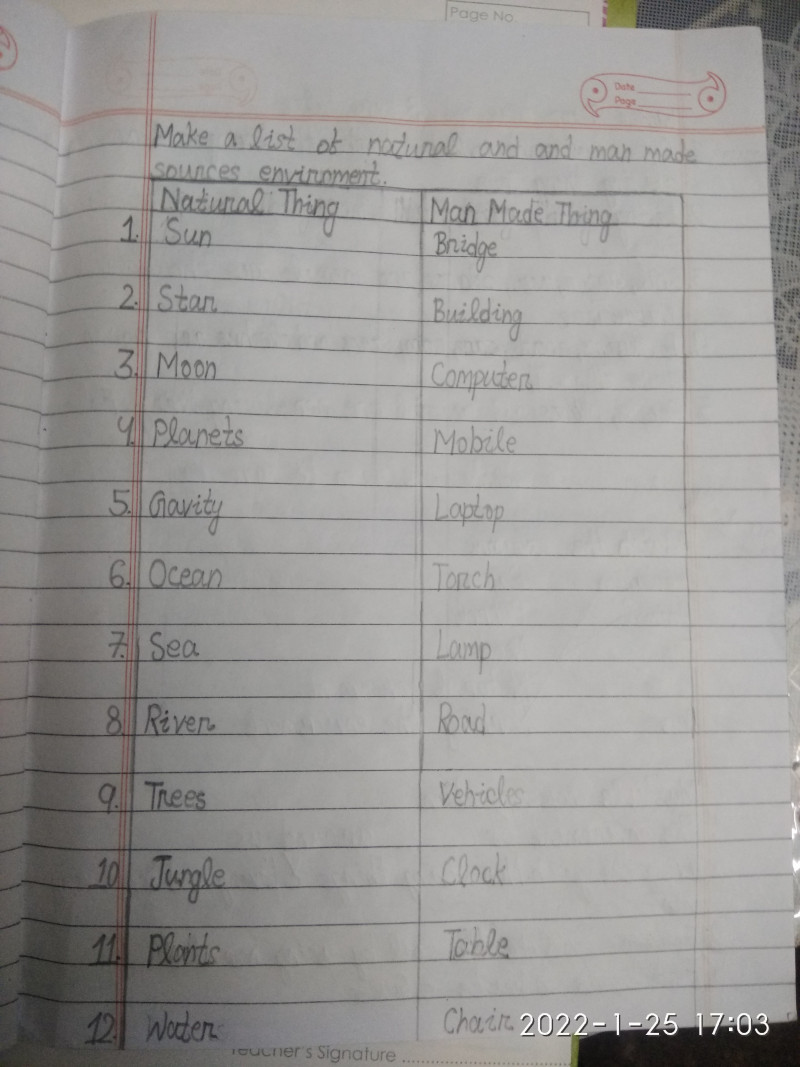 Page No
Date
Page
Make a list of natural and and man made
sources envirnment.
Natural Thing Man Made Thing
1. Sun Bridge
2. Star Building
3. Moon Computer
4. Planets Mobile
5. Gravity Laptop
6. Ocean Torch
7. Sea Lamp
8. River Road
9. Trees Vehicles
10. Jungle Clock
11. Plants Table
12. Water Chair
2022-1-25 17:03
Teacher's Signature